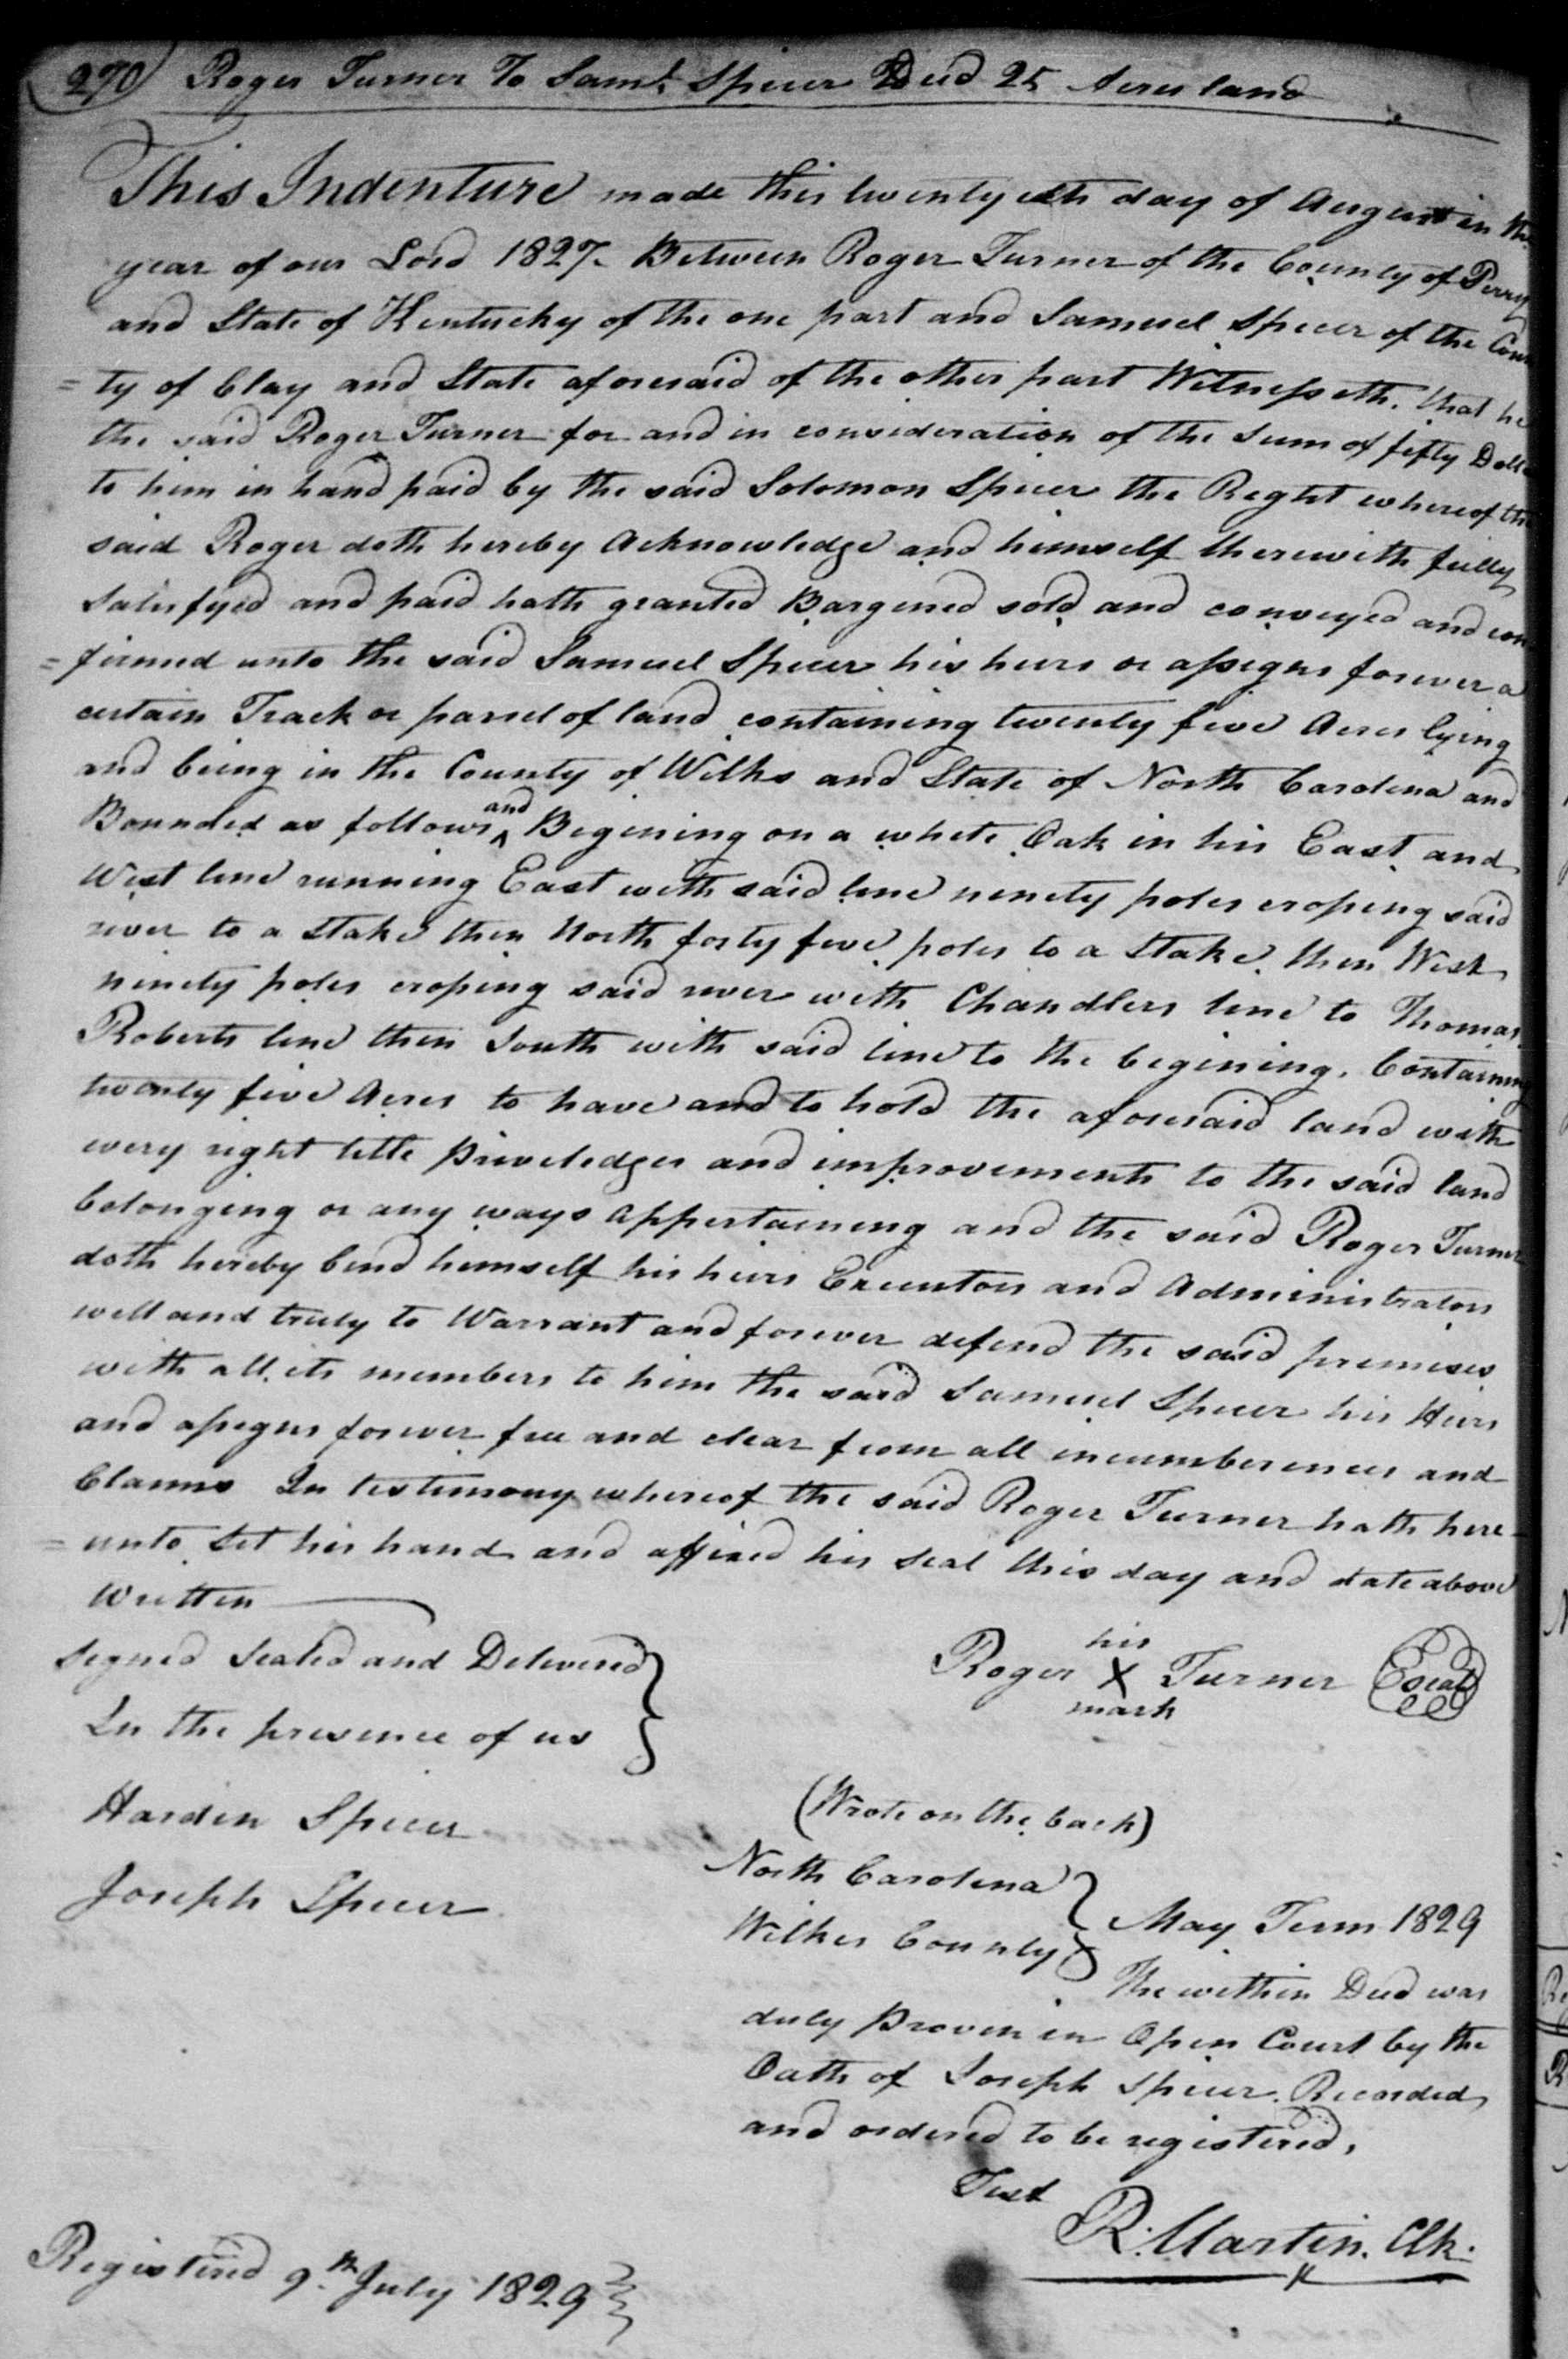 270 Roger Turner To Saml. Spicer Deed 25 Acres land
This Indenture made this twenty eth day of August in the
year of our Lord 1827. Between Roger Turner of the County of Perry
and State of Kentucky of the one part and Samuel Spicer of the Coun
=ty of Clay and State aforesaid of the other part Witnesseth. that he
the said Roger Turner for and in consideration of the Sum of fifty Doll
to him in hand paid by the said Solomon Spicer the Reght whereof the
said Roger doth hereby Acknowledge and himself therewith fully
Satisfyed and paid hath granted Bargened sold and conveyed and con
=firmed unto the said Samuel Spicer his heirs or assigns forever a
certain Track or parsel of land containing twenty five Acres lying
and being in the County of Wilks and State of North Carolina and
Bounded as follows and Begining on a white Oak in his East and
West line running East with said line ninety poles crossing said
river to a Stake then North forty five poles to a Stake then West
ninety poles crossing said river with Chandlers line to Thomas
Roberts line then South with said line to the begining. Containing
twenty five Acres to have and to hold the aforesaid land with
every right title Priveledges and improvements to the said land
belonging or any ways appertaining and the said Roger Turner
doth hereby bind himself his heirs Executors and Administrators
well and truly to Warrant and forever defend the said premises
with all its members to him the said Samuel Spicer his Heirs
and assigns forever free and clear from all incumberences and
Claims In testimony whereof the said Roger Turner hath here
=unto Set his hand and affixed his Seal this day and date above
Written
Signed Sealed and Delivered
In the presence of us
Roger his X mark Turner Seal
Hardin Spicer
Joseph Spicer
(Wrote on the back)
North Carolina
Wilkes County
May Term 1829
The within Deed was
duly Proven in Open Court by the
Oath of Joseph Spicer. Recorded
and ordered to be registered,
Test
R. Martin. Clk.
Registered 9.th July 1829